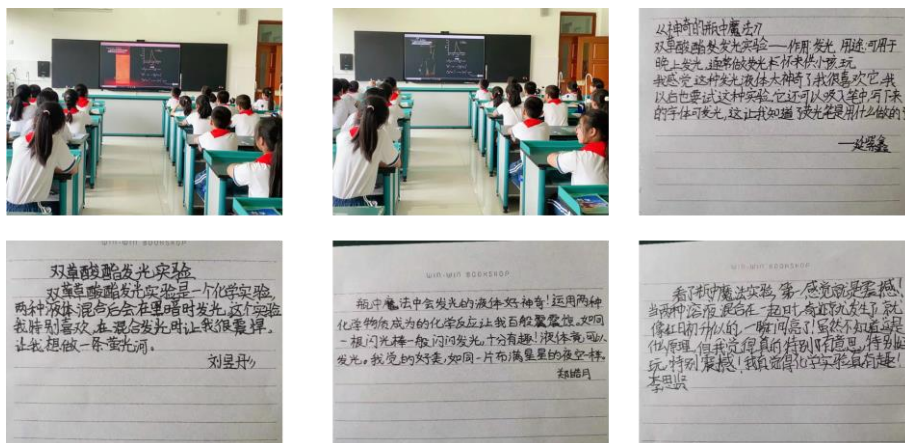 《神奇的瓶中魔法》
双草酸酯发光实验——作用:发光,用途:可用于
晚上发光,
我感觉这种发光液体太神奇了我很喜欢它,我
以后也要试这种实验,它还可以吸入笔中,写下来
的字体可发光,这让我知道了荧光笔是用什么做的
WIN-WIN BOOKSHOP
双草酸酯发光实验
双草酸酯发光实验是一个化学实验,
两种液体混合后会在黑暗时发光,这个实验
我特别喜欢,在混合发光时让我很震撼,
让我想做一条萤光河。
刘昱丹
WIN-WIN BOOKSHOP
瓶中魔法中会发光的液体好神奇!运用两种
化学物质成为的化学反应让我百般震惊,如同
一根闪光棒一般闪闪发光,十分有趣!液体竟可以
发光。我觉的好美,如同一片布满星星的夜空一样。
郑皓月
WIN-WIN BOOKSHOP
看了瓶中魔法实验,第一感觉就是震撼!
当两种溶液混合在一起时,奇迹就发生了,就
像红日初升似的,一瞬间亮了!虽然不知道这是
什么原理,但我觉得真的特别有意思,特别好
玩,特别震撼!我真觉得化学实验真有趣!
李思贤